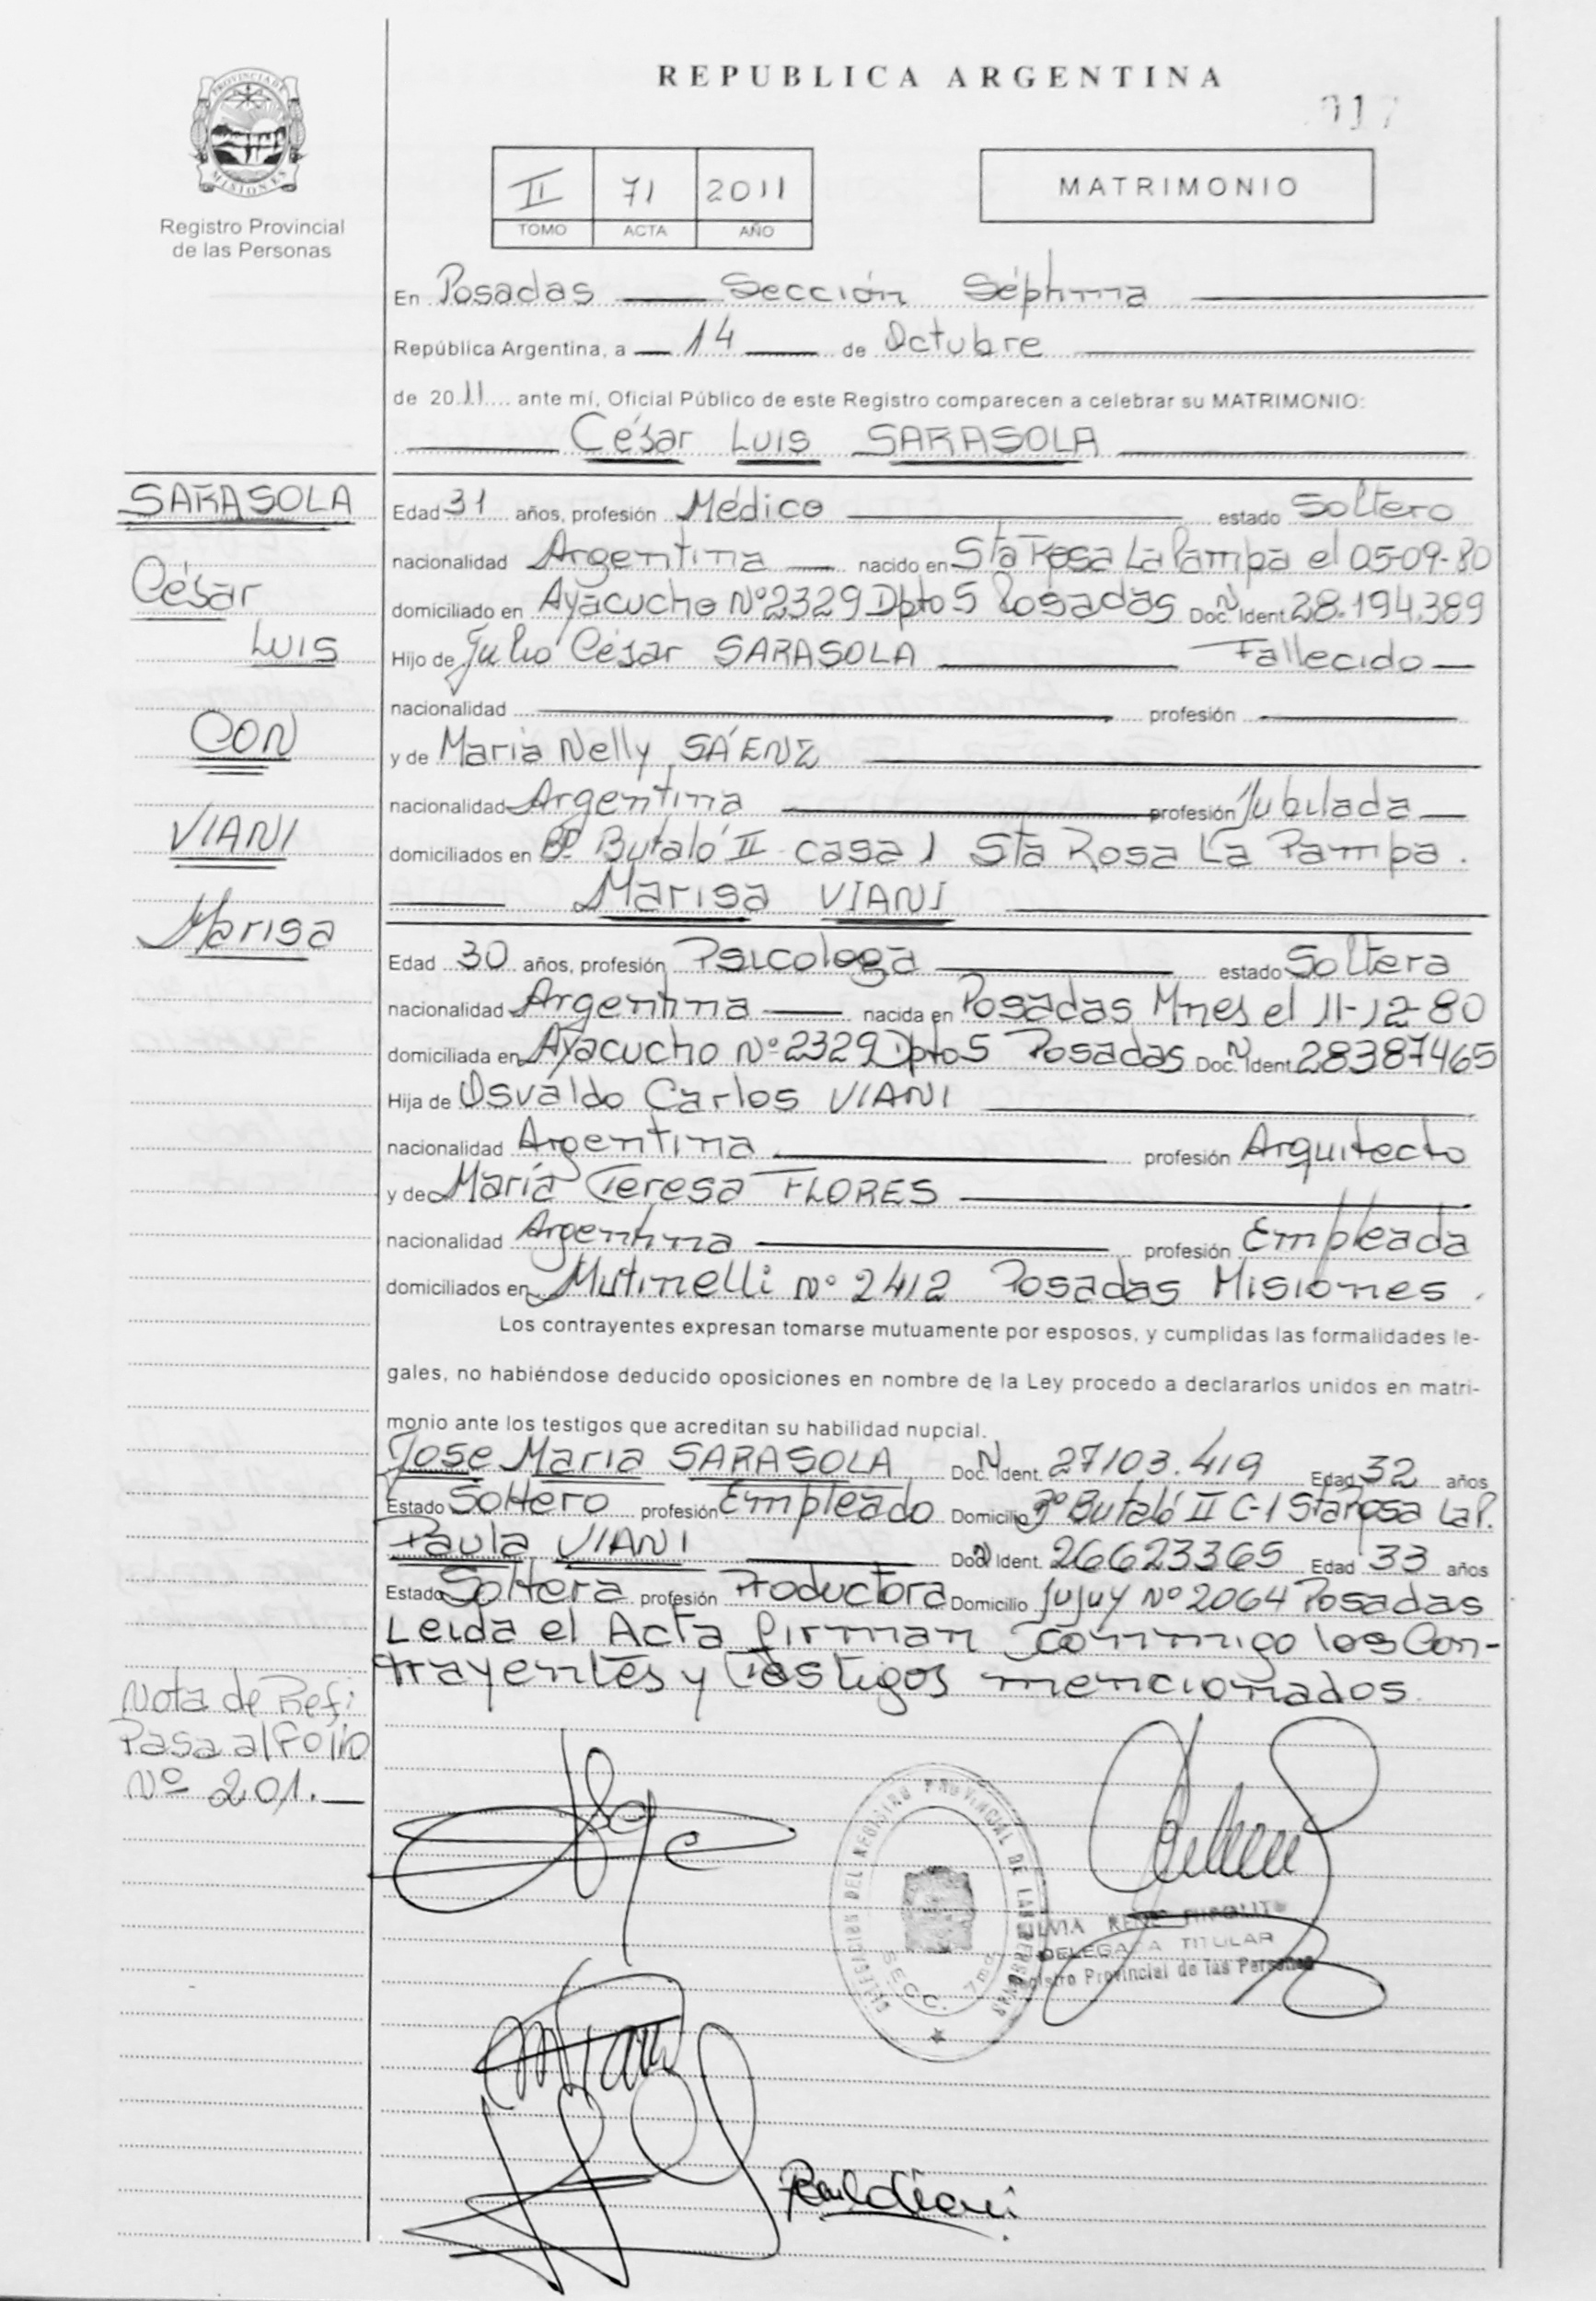 REPUBLICA ARGENTINA
PROVINCIA DE MISIONES
Registro Provincial
de las Personas
II 71 2011
TOMO ACTA AÑO
MATRIMONIO
En Posadas Sección Séptima
República Argentina, a 14 de Octubre
de 2011 ante mí, Oficial Público de este Registro comparecen a celebrar su MATRIMONIO:
César Luis SARASOLA
SARASOLA
César
Luis
CON
VIANI
Marisa
Edad 31 años, profesión Médico estado Soltero
nacionalidad Argentina nacido en Sta Rosa La Pampa el 05-09-80
domiciliado en Ayacucho Nº 2329 Dpto 5 Posadas Doc. N Ident. 28.194.389
Hijo de Julio César SARASOLA Fallecido
nacionalidad profesión
y de María Nelly SÁENZ
nacionalidad Argentina profesión Jubilada
domiciliados en Bº Butaló II casa 1 Sta Rosa La Pampa.
Marisa VIANI
Edad 30 años, profesión Psicologa estado Soltera
nacionalidad Argentina nacida en Posadas Mnes el 11-12-80
domiciliada en Ayacucho Nº 2329 Dpto 5 Posadas Doc. N Ident. 28387465
Hija de Osvaldo Carlos VIANI
nacionalidad Argentina profesión Arquitecto
y de María Teresa FLORES
nacionalidad Argentina profesión Empleada
domiciliados en Mutinelli Nº 2412 Posadas Misiones.
Los contrayentes expresan tomarse mutuamente por esposos, y cumplidas las formalidades le-
gales, no habiéndose deducido oposiciones en nombre de la Ley procedo a declararlos unidos en matri-
monio ante los testigos que acreditan su habilidad nupcial.
Jose Maria SARASOLA Doc. N Ident. 27103.419 Edad 32 años
Estado Soltero profesión Empleado Domicilio Bº Butaló II C-1 Sta Rosa La P.
Paula VIANI Doc. N Ident. 26623365 Edad 33 años
Estado Soltera profesión Productora Domicilio Jujuy Nº 2064 Posadas
Leida el Acta firman conmigo los Con-
trayentes y Testigos mencionados.
Nota de Ref:
Pasa al Folio
Nº 201.
DELEGACION DEL REGISTRO PROVINCIAL DE LAS PERSONAS
SECC. 7ma
DELEGADA TITULAR
Registro Provincial de las Personas